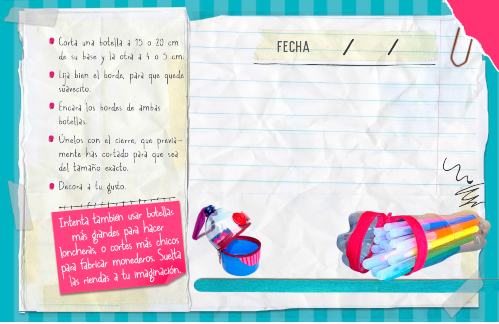 Corta una botella a 15 o 20 cm
de su base y la otra a 4 o 5 cm.
Lija bien el borde, para que quede
suavecito.
Encara los bordes de ambas
botellas.
Únelos con el cierre, que previa-
mente has cortado para que sea
del tamaño exacto.
Decora a tu gusto.
Intenta también usar botellas
más grandes para hacer
loncheras, o cortes más chicos
para fabricar monederos. Suelta
las riendas a tu imaginación.
FECHA / /